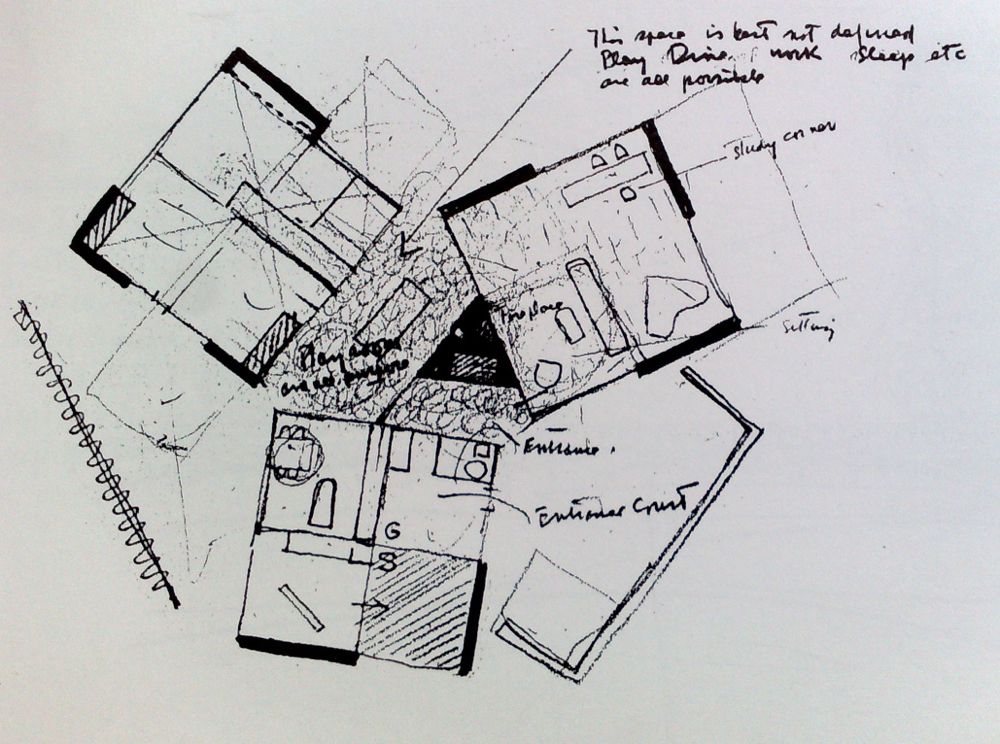 This space is best not defined
Play Dine, work Sleep etc
are all possible
study corner
Fireplace
Sitting
Play
are all
Entrance.
Entrance Court
G
S